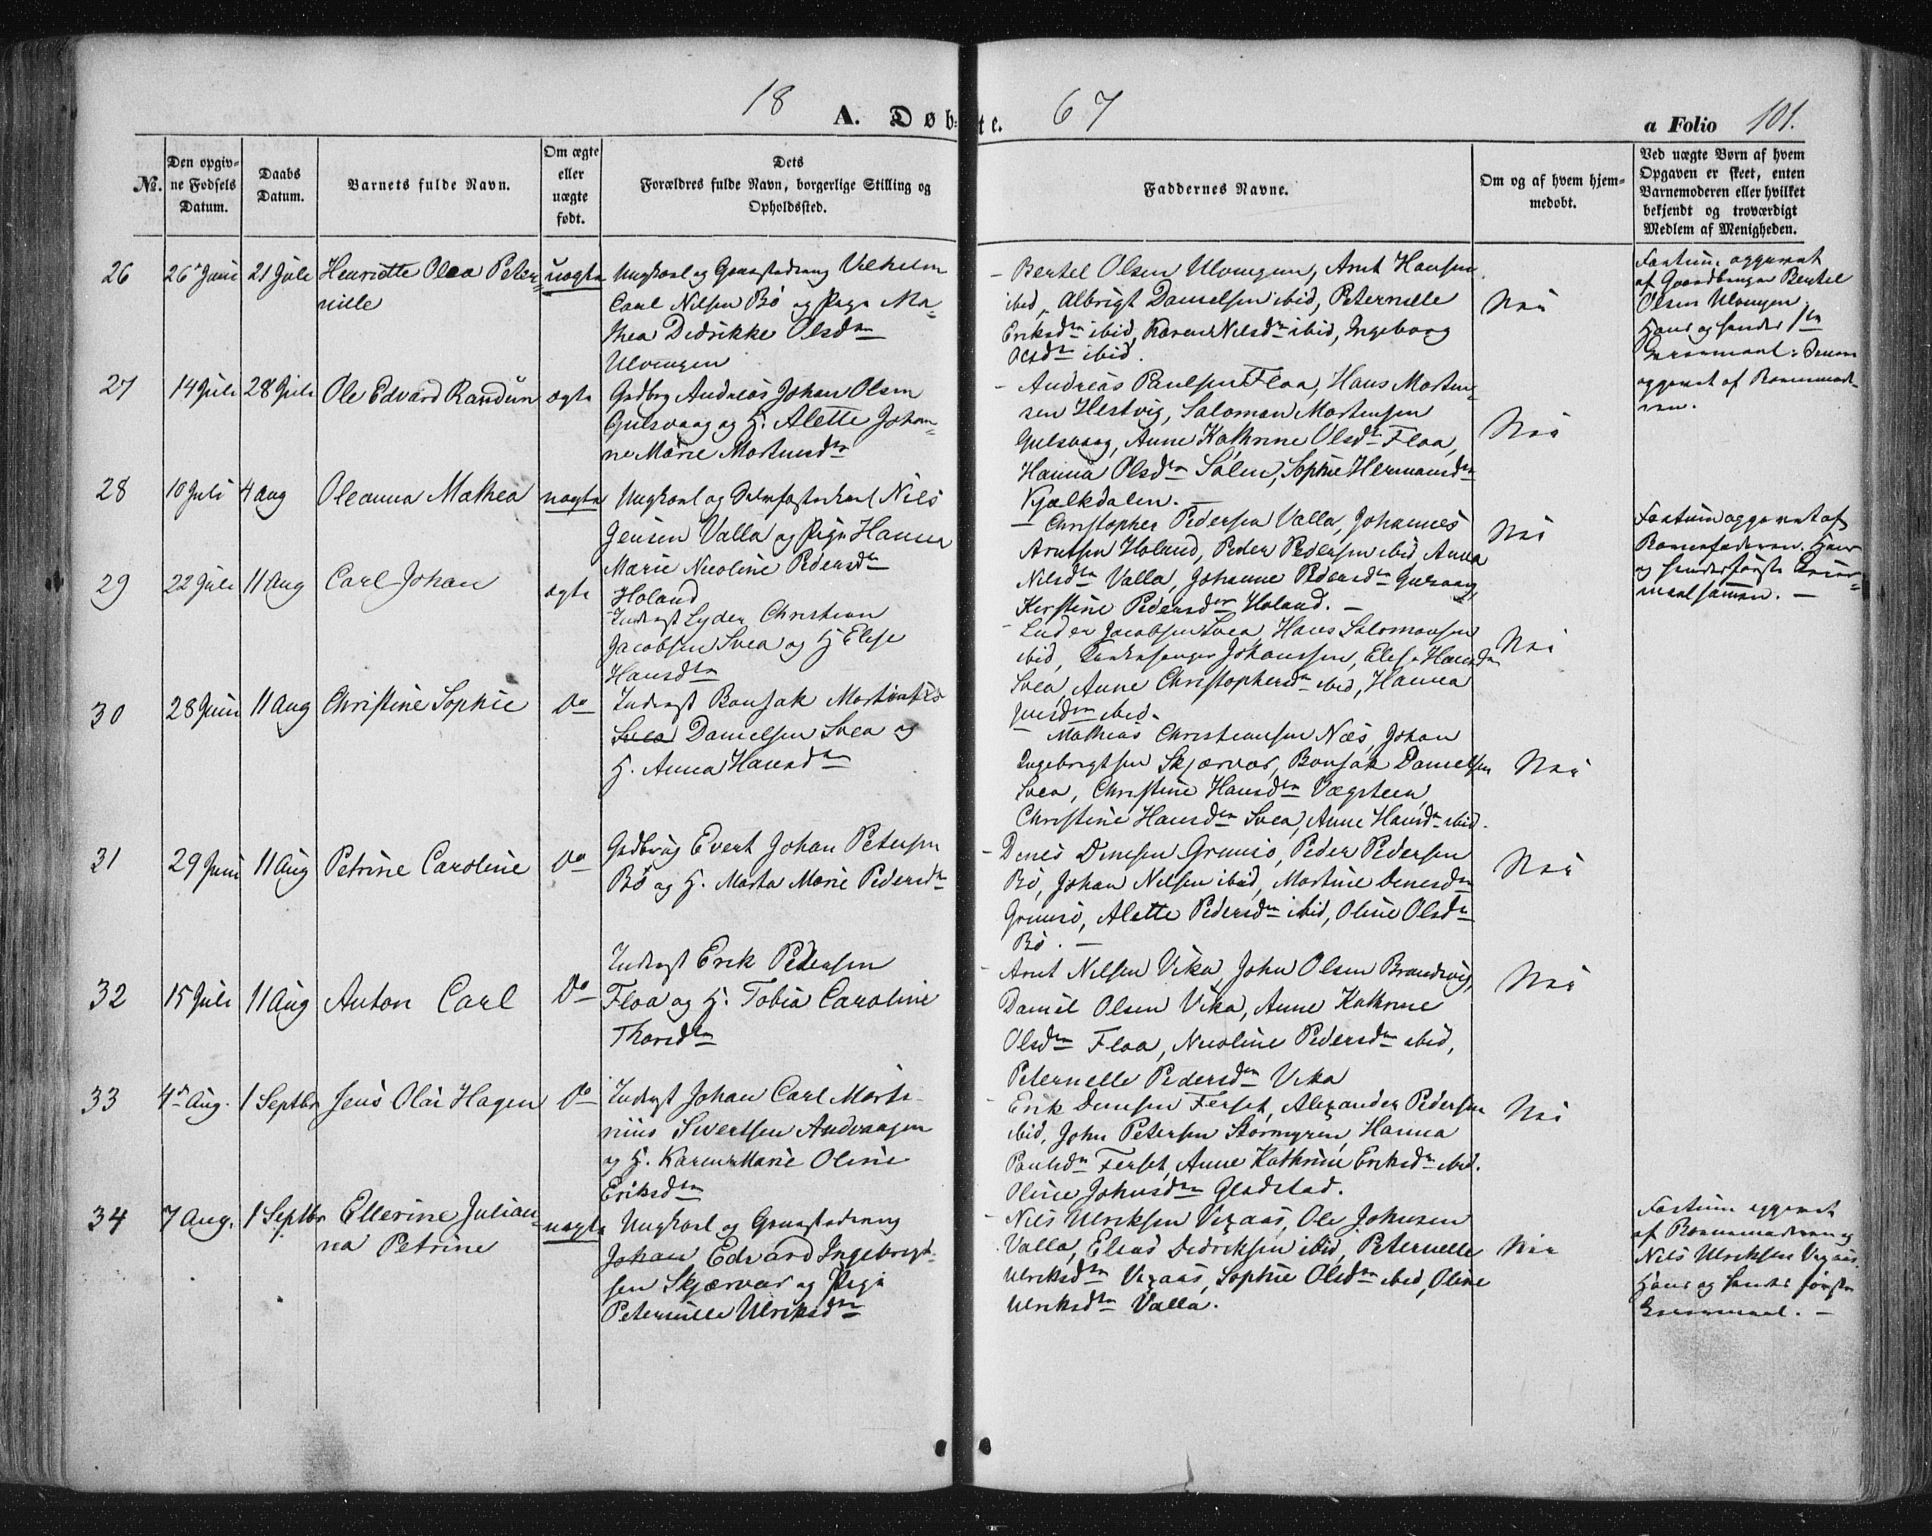 18 A. Døbte. 67
a Folio 101.
No.
Den opgivne Fødsels Datum.
Daabs Datum.
Barnets fulde Navn.
Om ægte eller uægte født.
Dets Forældres fulde Navn, borgerlige Stilling og Opholdssted.
Faddernes Navne.
Om og af hvem hjemmedøbt.
Ved uægte Børn af hvem Opgaven er skeet, enten Barnemoderen eller hvilket bekjendt og troværdigt Medlem af Menigheden.
26 26 Juni 21 Juli Henriette Olea Peter-
nille
uægte
Ungkarl og Gaardsdreng Vilhelm
Carl Nilsen Bø og Pige Ma-
thea Didrikke Olsdtr
Ulvingen
- Bertel Olsen Ulvingen, Arnt Hansen
ibid, Albrigt Danielsen ibid, Peternelle
Eriksdtr ibid, Karen Nilsdtr ibid, Ingeborg
Olsdtr ibid.
Nei
af Gaardbruger Bertel
Olsen Ulvingen
Hans og hendes 1ste
27 14 Juli 28 Juli Ole Edvard Randun ægte
Gdbrg Andreas Johan Olsen
Gulsvaag og H. Alette Johan-
ne Marie Mortensdtr
- Andreas Paulsen Floa, Hans Morten-
sen Hestvig, Saloman Mortensen
Gulsvaag, Anne Kathrine Olsdtr Floa,
Hanna Olsdtr Sølen, Sophie Hermansdtr
Kjælkdalen. -
Nei
28 10 Juli 4 Aug Oleanna Mathea uægte
Ungkarl og Selvfosterkarl Nils
Jensen Valla og Pige Hanna
Marie Nicoline Pedersdtr
Holand
- Christopher Pedersen Valla, Johannes
Arntsen Holand, Peder Pedersen ibid, Anna
Nilsdtr Valla, Johanne Pedersdtr Gulsvaag,
Kerstine Pedersdtr Holand. -
Nei
Barnefaderen. Hans
29 22 Juli 11 Aug Carl Johan ægte
Inderst Lyder Christian
Jacobsen Svea og H Elise
Hansdtr
- Luder Jacobsen Svea, Hans Salomonsen
ibid, Kirkesanger Johanssen, Elise Hansdtr
Svea, Anne Christophersdtr ibid, Hanna
Jensdtr ibid.
Nei
30 28 Juni 11 Aug Christine Sophie Do
Inderst Bonsak Martinus
Svea Danielsen Svea og
H. Anna Hansdtr
- Mathias Christiansen Næs, Johan
Ingebrigtsen Skjærvær, Bonsak Danielsen
Svea, Christine Hansdtr Vægsteen,
Christine Hansdtr Svea, Anne Hansdtr ibid.
Nei
31 29 Juni 11 Aug Petrine Caroline Do
Gdbrug Evert Johan Petersen
Bø og H. Marta Marie Pedersdtr
- Denes Denesen Grimsø, Peder Pedersen
Bø, Johan Nilsen ibid, Martine Denesdtr
Grimsø, Alette Pedersdtr ibid, Oline Olsdtr
Bø. -
Nei
32 15 Juli 11 Aug Anton Carl Do
Inderst Erik Pedersen
Floa og H. Tobia Caroline
Thorsdtr
- Arnt Nilsen Vika, John Olsen Brandsvig,
Daniel Olsen Vika, Anne Kathrine
Olsdtr Floa, Nicoline Pedersdtr ibid,
Peternelle Pedersdtr Vika
Nei
33 4de Aug. 1 Septbr Jens Olai Hagen Do
Inderst Johan Carl Marti-
nius Sivertsen Andvaagen
og H. Karen Marie Oline
Eriksdtr
- Erik Denesen Ferset, Alexander Pedersen
ibid, John Petersen Stormyren, Hanna
Paulsdtr Ferset, Anne Kathrine Eriksdtr ibid.
Oline Johnsdtr Gladstad.
Nei
34 7 Aug. 1 Septbr Ellerine Julian-
na Petrine
uægte
Ungkarl og Gaardsdreng
Johan Edvard Ingebrigt-
sen Skjærvær og Pige
Peternille Ulriksdtr
- Nils Ulriksen Vegaas, Ole Johnsen
Valla, Elias Didriksen ibid, Peternelle
Ulriksdtr Vegaas, Sophie Olsdtr ibid, Oline
Ulriksdtr Valla.
Nei
af Barnemoderen og
Nils Ulriksen Vegaas.
Hans og hendes første
Leiermaal. -